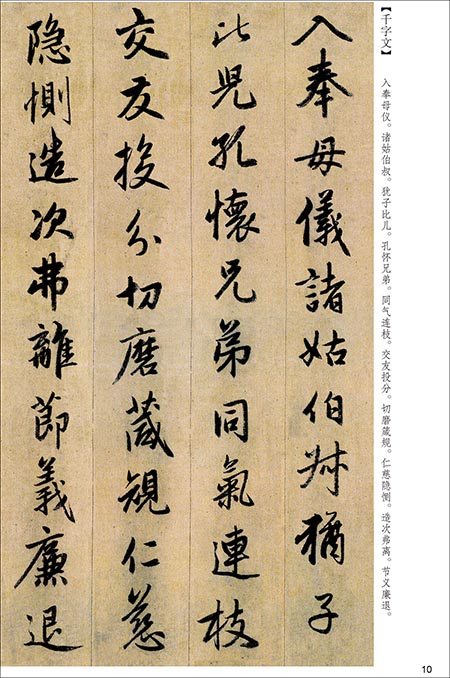 【千字文】
入奉母仪。诸姑伯叔。犹子比儿。孔怀兄弟。同气连枝。交友投分。切磨箴规。仁慈隐恻。造次弗离。节义廉退。
入奉母儀諸姑伯叔猶子
比兒孔懷兄弟同氣連枝
交友投分切磨箴規仁慈
隱惻造次弗離節義廉退
10